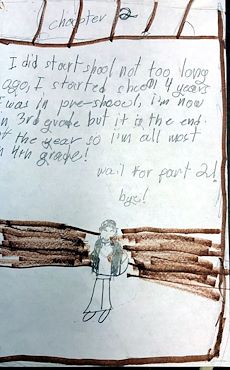 chapter 2
I did start shool not too long
ago, I started shool 4 years
I was in pre-shoool, i'm now
in 3rd grade but it is the end.
of the year so i'm all most
in 4th grade!
wait for part 2!
bye!